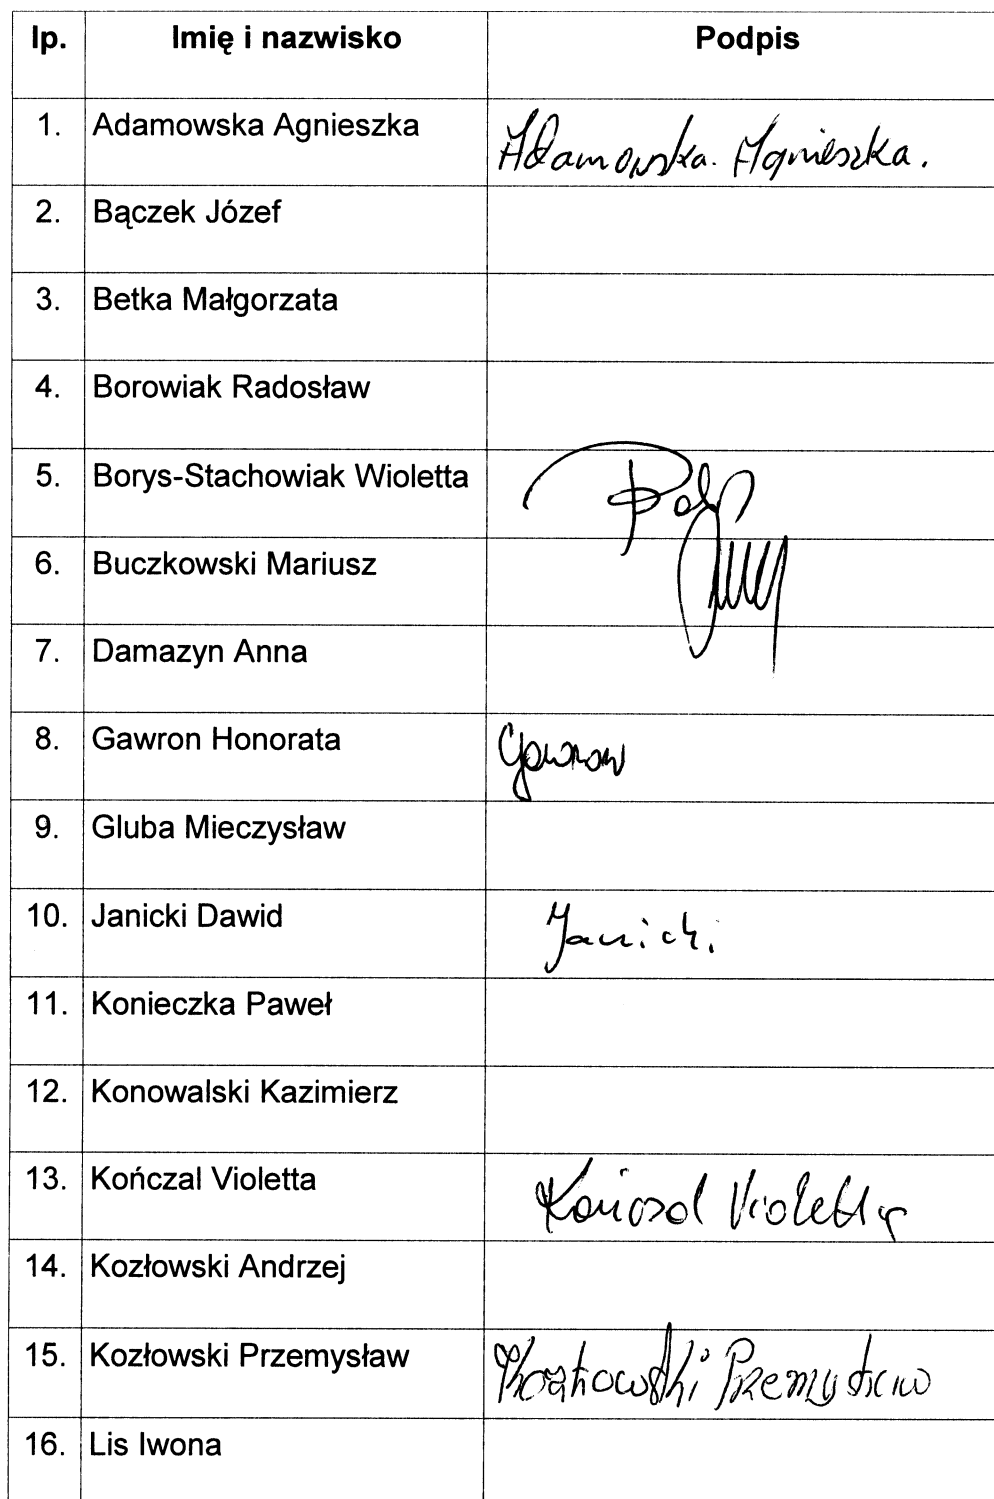 lp. Imię i nazwisko Podpis
1. Adamowska Agnieszka Adamowska. Agnieszka.
2. Bączek Józef
3. Betka Małgorzata
4. Borowiak Radosław
5. Borys-Stachowiak Wioletta
6. Buczkowski Mariusz
7. Damazyn Anna
8. Gawron Honorata Gawron
9. Gluba Mieczysław
10. Janicki Dawid Janicki
11. Konieczka Paweł
12. Konowalski Kazimierz
13. Kończal Violetta Kończal Violetta
14. Kozłowski Andrzej
15. Kozłowski Przemysław Kozłowski Przemysław
16. Lis Iwona